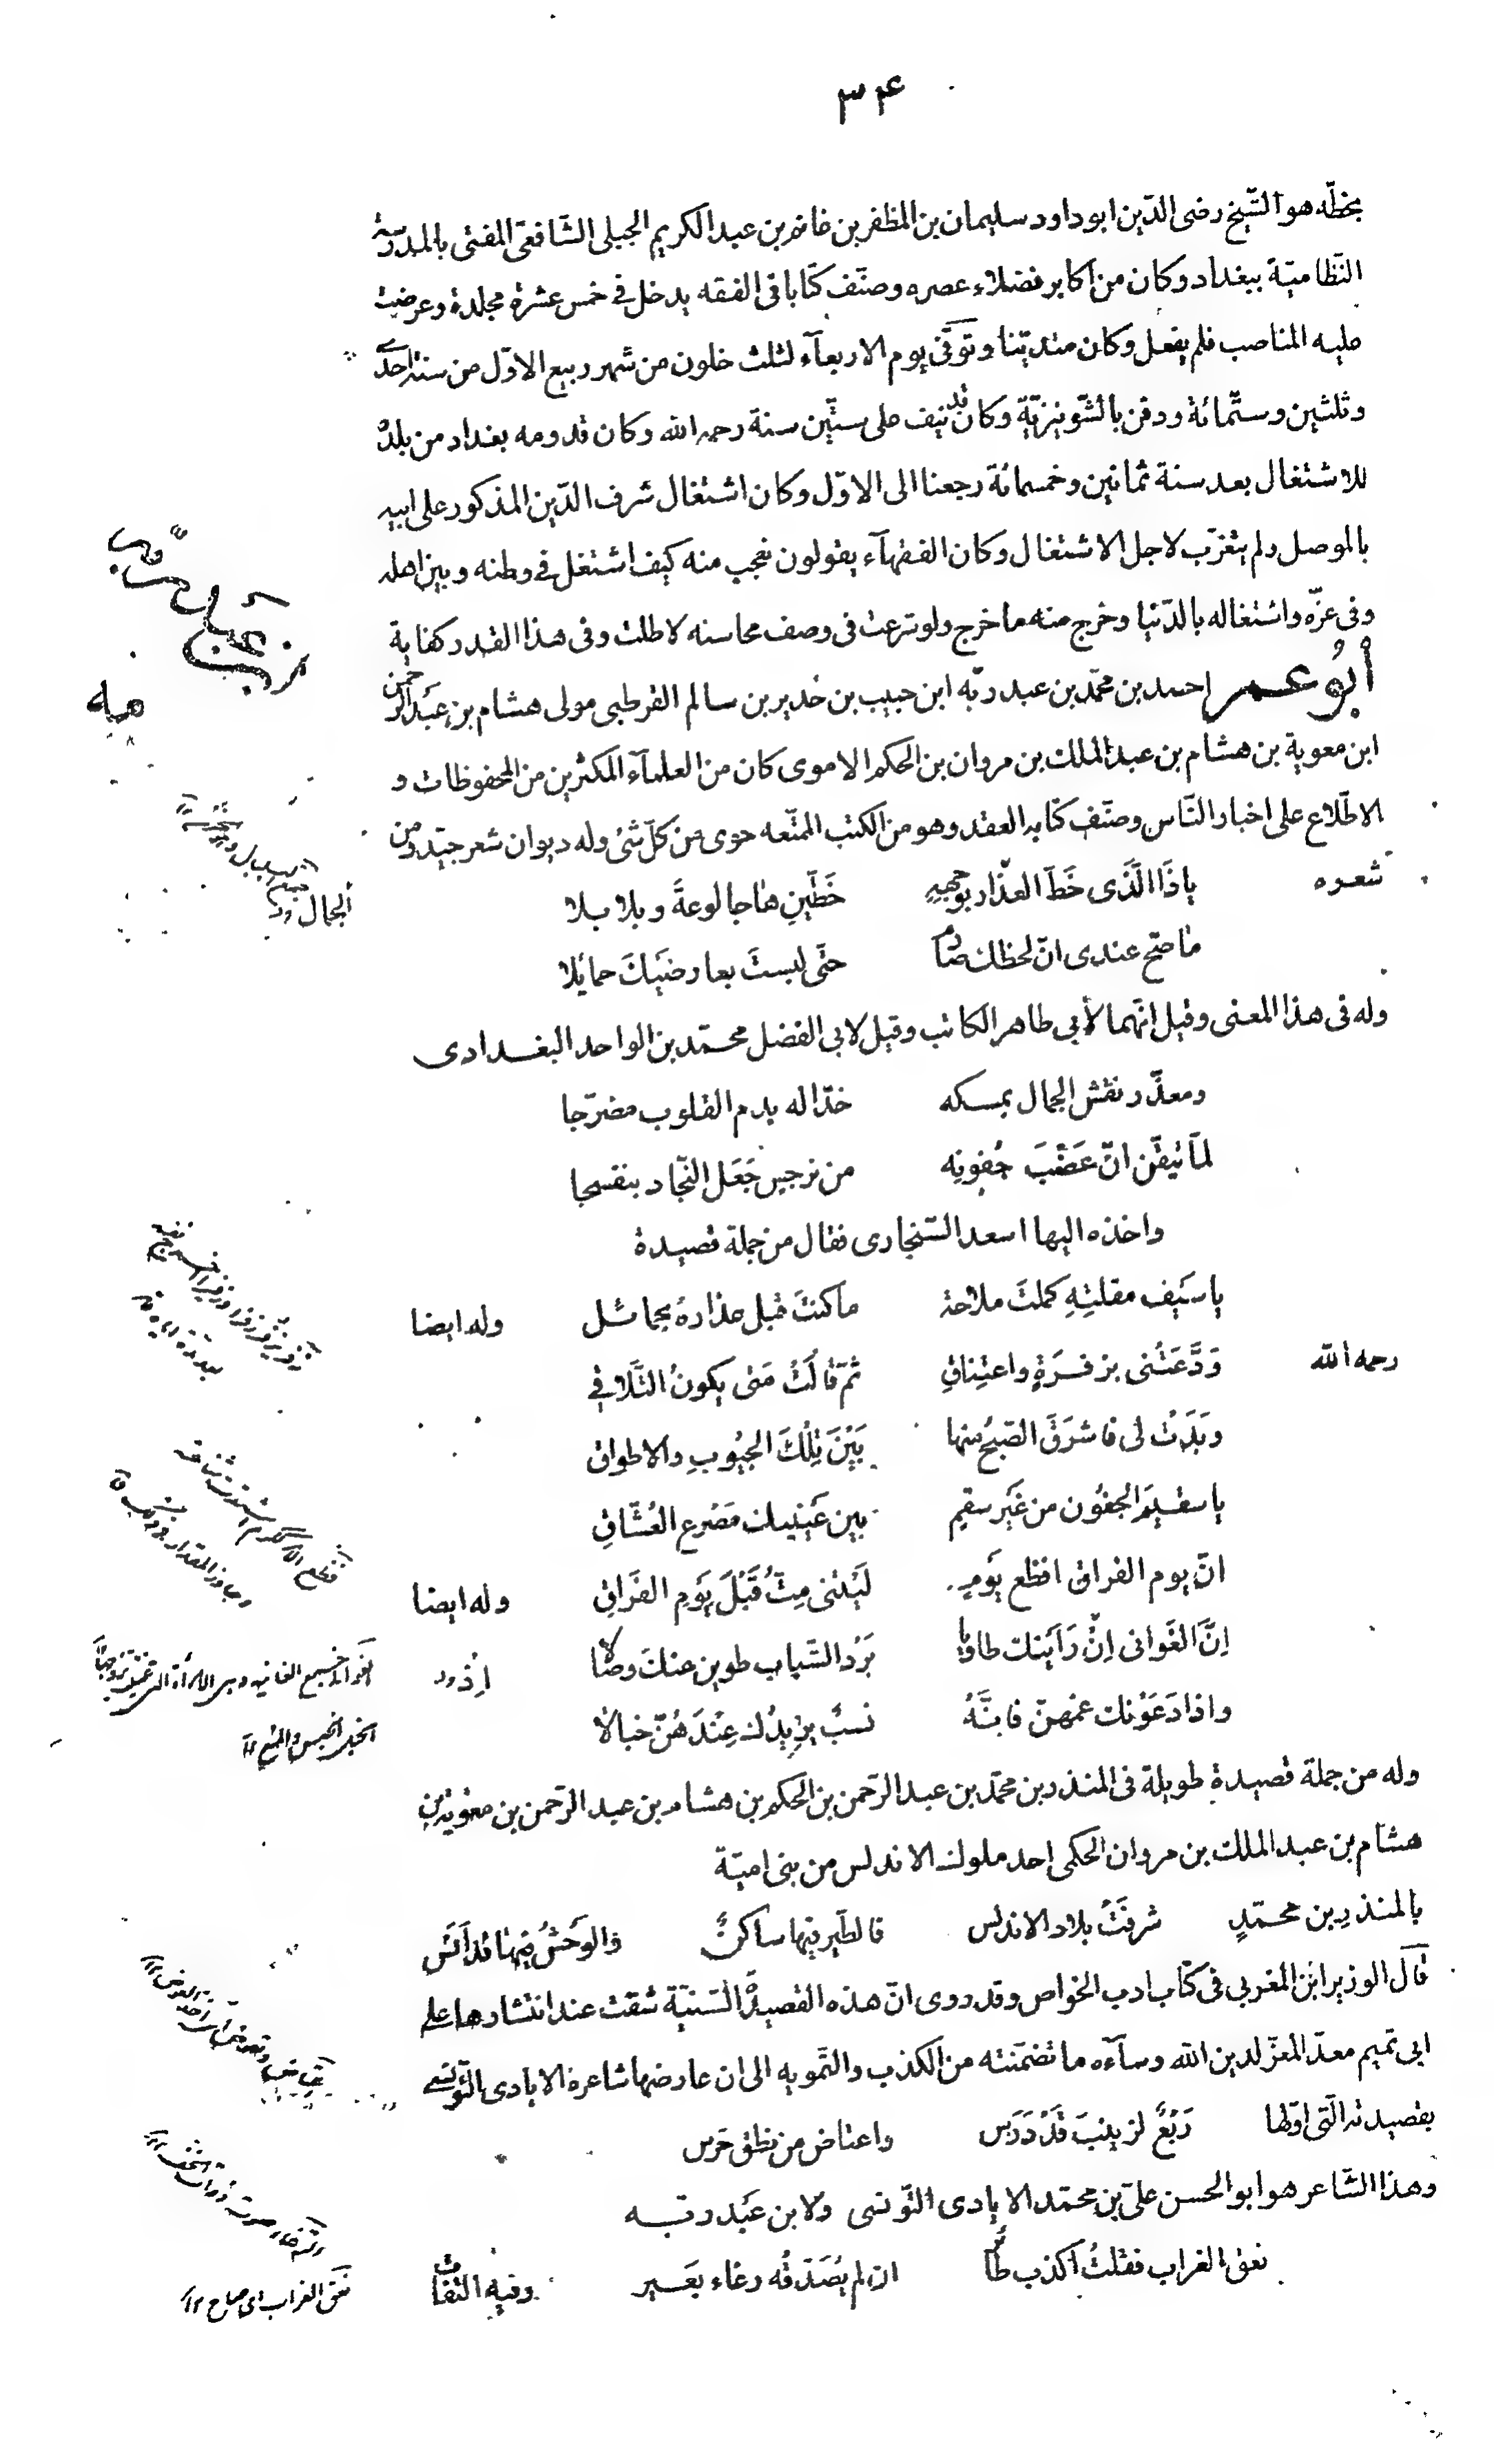 ٣۴
بخطّه هو الشّيخ رضى الدّين ابو داود سليمان بن المظفر بن غانم بن عبد الكريم الجيلى الشّافعىّ المفتى بالمدرسة
النّظاميّة ببغداد وكان من اكابر فضلاء عصره وصنّف كتابا فى الفقه يدخل فى خمس عشرة مجلدة وعرضت
عليه المناصب فلم يفعل وكان متديّنا وتوفّى يوم الاربعآء لثلث خلون من شهر ربيع الاوّل من سنة احدى
وثلثين وستّمائة ودفن بالشّونيزيّة وكان قد نيف على ستّين سنة رحمه الله وكان قدومه بغداد من بلده
للاشتغال بعد سنة ثمانين وخمسمائة رجعنا الى الاوّل وكان اشتغال شرف الدّين المذكور على ابيه
بالموصل ولم يتغرّب لاجل الاشتغال وكان الفقهآء يقولون نعجب منه كيف اشتغل فى وطنه وبين اهله
وفى عزّه واشتغاله بالدّنيا وخرج منه ما خرج ولو شرعت فى وصف محاسنه لاطلت وفى هذا القدر كفاية
أبُو عمر احمد بن محمّد بن عبد ربّه ابن حبيب بن حُدير بن سالم القرطبى مولى هشام بن عَبْد الرحمن
ابن معوية بن هشام بن عبد الملك بن مروان بن الحكم الاموى كان من العلمآء المكثرين من المحفوظات و
الاطّلاع على اخبار النّاس وصنّف كتابه العقد وهو من الكتب الممتّعه حوى من كلّ شئ وله ديوان شعر جيّد ومن
شعره يا ذَا الَّذى خَطّ العذار بوجهِهِ خَطّينِ هاجا لوعةً وبلابلا
ما صحّ عندى انّ لحظك صارم حتّى لبستَ بعارضَيكَ حمائلا
وله فى هذا المعنى وقيل انّهما لأبى طاهر الكاتب وقيل لابى الفضل محمّد بن الواحد البغدادى
ومعذّر نقش الجمال بمسكه خدّا له بدم القلوب مضرّجا
لمّا تيقّن انّ عَضْبَ جُفونِه من نرجس جَعَل النّجاد بنفسجا
واخذه اليها اسعد السّنجارى فقال من جملة قصيدة
يا سَيف مقلتِهِ كملتَ ملاحة ما كنتَ قبل عذارهُ بحمائل وله ايضا
رحمه الله وَدَّعَتْنى بزفرَةٍ واعتِناقِ ثمّ قالَتْ مَتى يكونُ التَّلاقى
وبَدَتْ لى فاشرَقَ الصّبحُ منها بَيْنَ تِلْكَ الجُيُوبِ والاطواق
يا سقيمَ الجفُون من غَيرِ سقيم بين عَينيك مَصْرع العُشّاقِ
انّ يوم الفراق افظع يَومٍ لَيْتنى مِتّ قَبْلَ يَومِ الفَراقِ وله ايضا
اِنَّ الغَوانى اِنْ رَاَيْنك طاويا بَرْدَ الشّباب طوين عنكَ وصالا
واذا دَعَوْنك عمّهنّ فانّهُ نسبٌ يزيدُك عِنْدَهُنّ خبالا
وله من جملة قصيدة طويلة فى المنذر بن محمّد بن عبد الرّحمن بن الحكم بن هشام بن عبد الرّحمن بن معوية بن
هشام بن عبد الملك بن مروان الحكمى احد ملوك الاندلس من بنى اميّة
بالمنذرِ بن محمّدٍ شرفَتْ بلاد الاندلس فالطّير فيها ساكنٌ والوَحشُ فيها قد اَنَس
قال الوزير ابن المغربى فى كتاب ادب الخواص وقد روى انّ هذه القصيدة السّنيّة شقت عند انتشارها على
ابى تميم معدّ المعزّ لدين الله وسآءه ما تضمّنته من الكذب والتّمويه الى ان عارضها شاعره الايادى التّونسى
بقصيدته الّتى اوّلها رَبْعٌ لزينبَ قَدْ دَرَس واعتاض من نطق خَرَس
وهذا الشّاعر هو ابو الحسن علىّ بن محمّد الايادى التّونسى ولابن عَبْد ربّه
نعق الغراب فقلتُ اكذب طائر ان لم يُصَدّقْه رغاء بَعَير وفيه التفات
نَعَق الغراب اى صاح ١٢